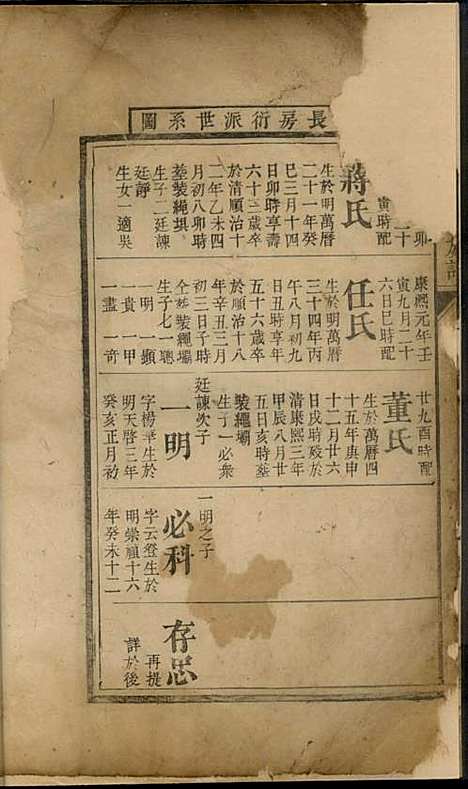 長房衍派世系圖
卯
二十
寅時配
蔣氏
生於明萬曆
二十一年癸
巳三月十四
日卯時享壽
六十三歲卒
於清順治十
二年乙未四
月初八卯時
塟裝繩垻
生子二廷諫
廷諍
生女一適吳
康熙元年壬
寅九月二十
六日巳時配
任氏
生於明萬曆
三十四年丙
午八月初九
日丑時享年
五十六歲卒
於順治十八
年辛丑三月
初三日子時
仝塟裝繩垻
生子七一聰
一明 一顯
一貴 一甲
一畫 一奇
廿九酉時配
董氏
生於萬曆四
十五年庚申
十二月廿六
日戌時歿於
清康熙三年
甲辰八月廿
五日亥時塟
裝繩垻
生子一必眾
廷諫次子
一明
字楊華生於
明天啓三年
癸亥正月初
一明之子
必科
字云登生於
明崇禎十六
年癸未十二
存忠
再提
詳於後